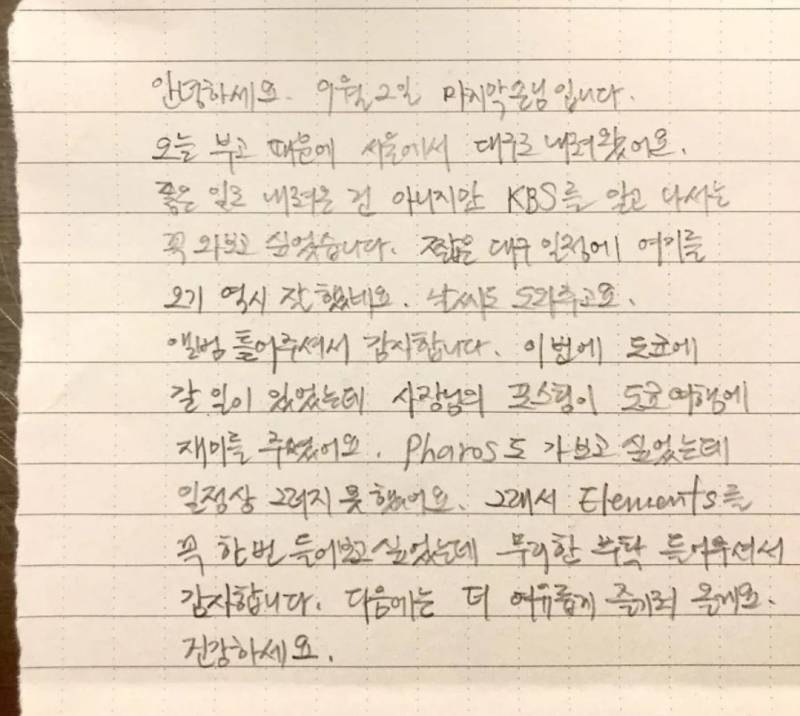 안녕하세요. 9월 2일 마지막손님입니다.
오늘 부고 때문에 서울에서 대구로 내려왔어요.
좋은 일로 내려온 건 아니지만 KBS를 알고 나서는
꼭 와보고 싶었습니다. 짧은 대구 일정에 여기를
오기 역시 잘했네요. 날씨도 도와주고요.
앨범 틀어주셔서 감사합니다. 이번에 도쿄에
갈 일이 있었는데 사장님의 포스팅이 도쿄여행에
재미를 주셨어요. Pharos도 가보고 싶었는데
일정상 그러지 못했어요. 그래서 Elements를
꼭 한번 들어보고싶었는데 무리한 부탁 들어주셔서
감사합니다. 다음에는 더 여유롭게 즐기러 올게요.
건강하세요.